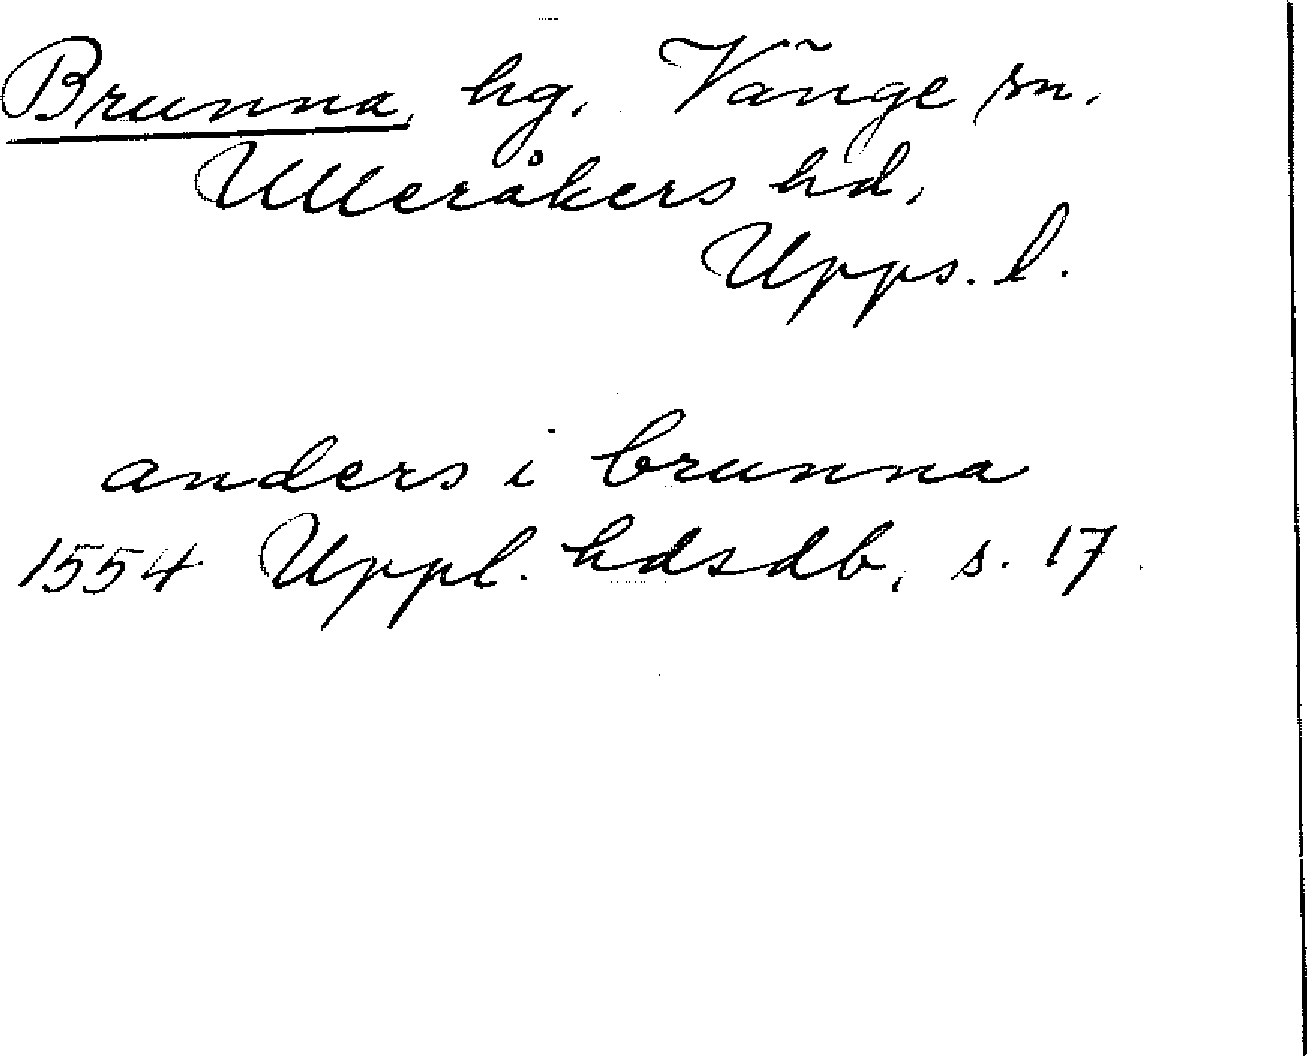 Brunna, hg. Vänge sn.
Ulleråkers hd.
Upps. l.
anders i brunna
1554 Uppl. hdsdb, s. 17.